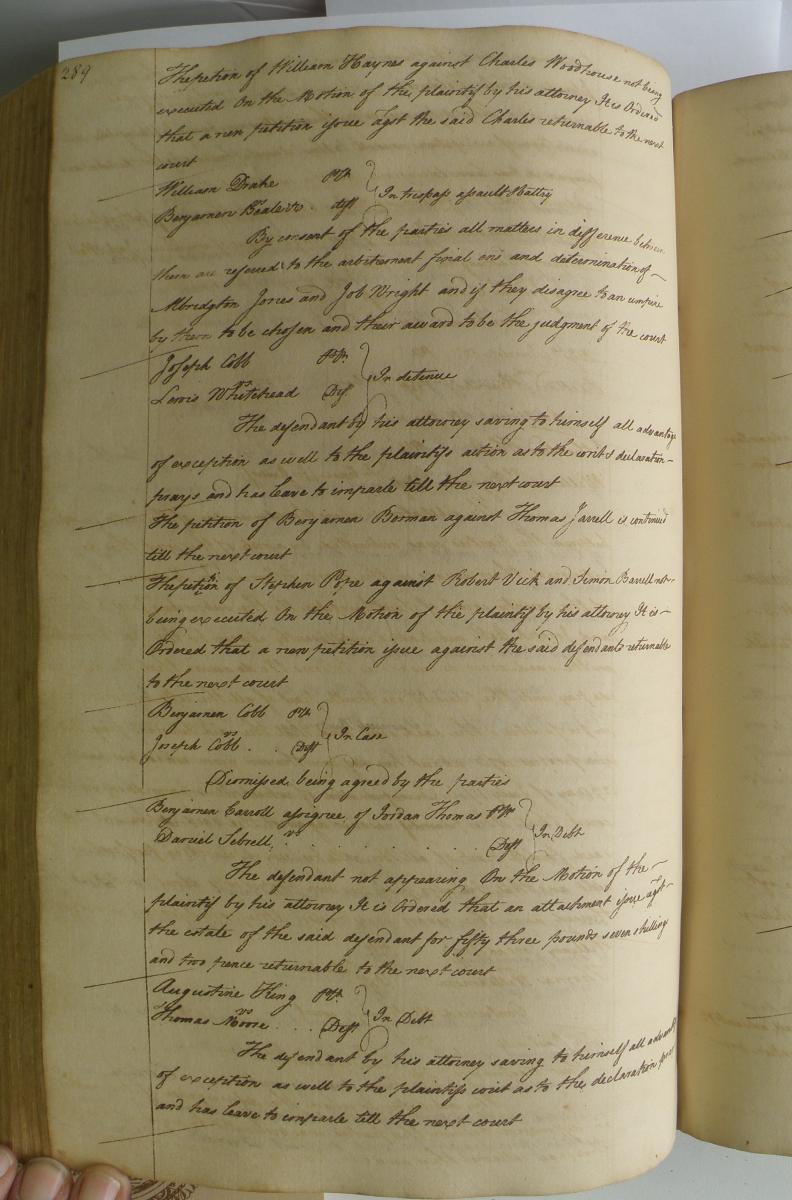 289
The petion of William Haynes against Charles Woodhouse not being
executed On the Motion of the plaintif by his attorney It is Ordered
that a new petition issue agst the said Charles returnable to the next
court
William Drake Plt.
Benjamen Beale vs . deft } In trespass assault & Battry
By consent of the parties all matters in difference between
them are referred to the arbitrement final end and determination of
Albridgton Jones and Job Wright and if they disagree to an umpire
by them to be chosen and their award to be the judgment of the court
Joseph Cobb Plt.
vs } In detenue
Lewis Whitehead Def.
The defendant by his attorney saving to himself all advantage
of exception as well to the plaintifs action as to the writ & declaration
prays and has leave to imparle till the next court
The petition of Benjamen Berman against Thomas Jarrell is continued
till the next court
The petition of Stephen Pope against Robert Vick and Simon Barrell not
being executed On the Motion of the plaintif by his attorney It is
Ordered that a new petition issue against the said defendants returnable
to the next court
Benjamen Cobb Plt.
vs } In Case
Joseph Cobb . . Deft
Dismissed being agreed by the parties
Benjamen Carroll assignee of Jordan Thomas Plt
vs } In Debt
Daniel Sebrell . . . . . . Deft
The defendant not appearing On the Motion of the
plaintif by his attorney It is Ordered that an attachment issue agst
the estate of the said defendant for fifty three pounds seven shillings
and two pence returnable to the next court
Augustine King Plt.
vs } In Debt
Thomas Moore . . . Deft
The defendant by his attorney saving to himself all advantage
of exception as well to the plaintifs writ as to the declaration prays
and has leave to imparle till the next court